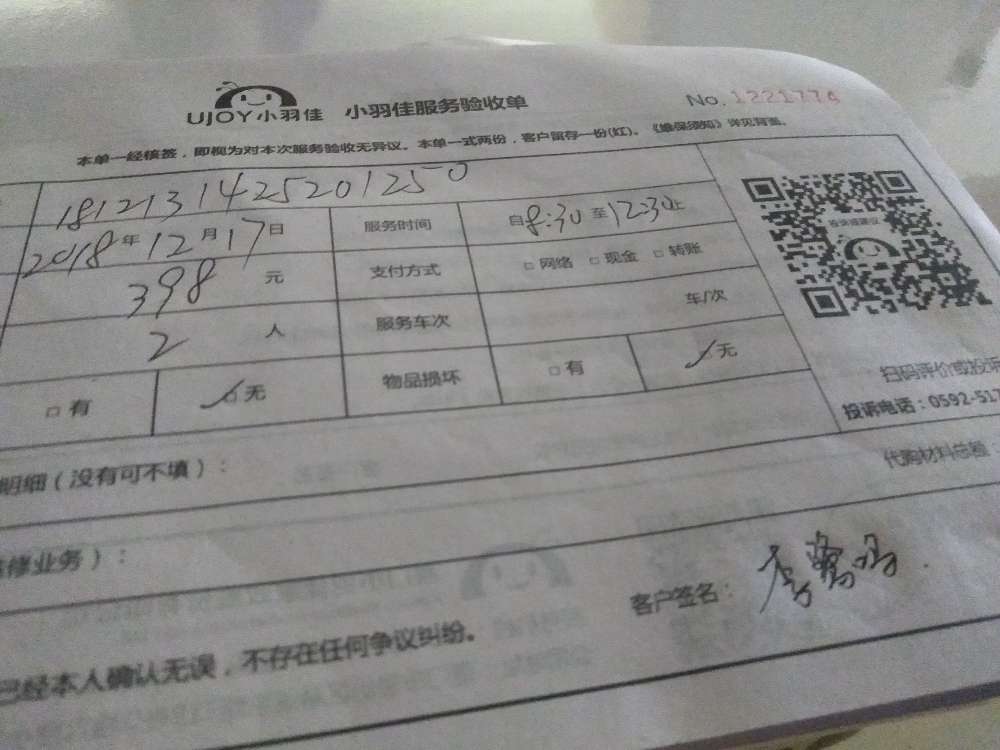 UJOY小羽佳 小羽佳服务验收单 No. 1221774
本单一经核签，即视为对本次服务验收无异议。本单一式两份，客户留存一份(红)。《维保须知》详见背面。
181213142520 1250
2018年12月17日 服务时间 自8:30至12:30止
398元 支付方式 □网络 □现金 □转账
2人 服务车次 车/次
□有 □无 物品损坏 □有 无
投诉或建议
扫码评价或投诉
投诉电话：0592-517
明细（没有可不填）： 代购材料总额：
修业务）：
客户签名：
已经本人确认无误，不存在任何争议纠纷。